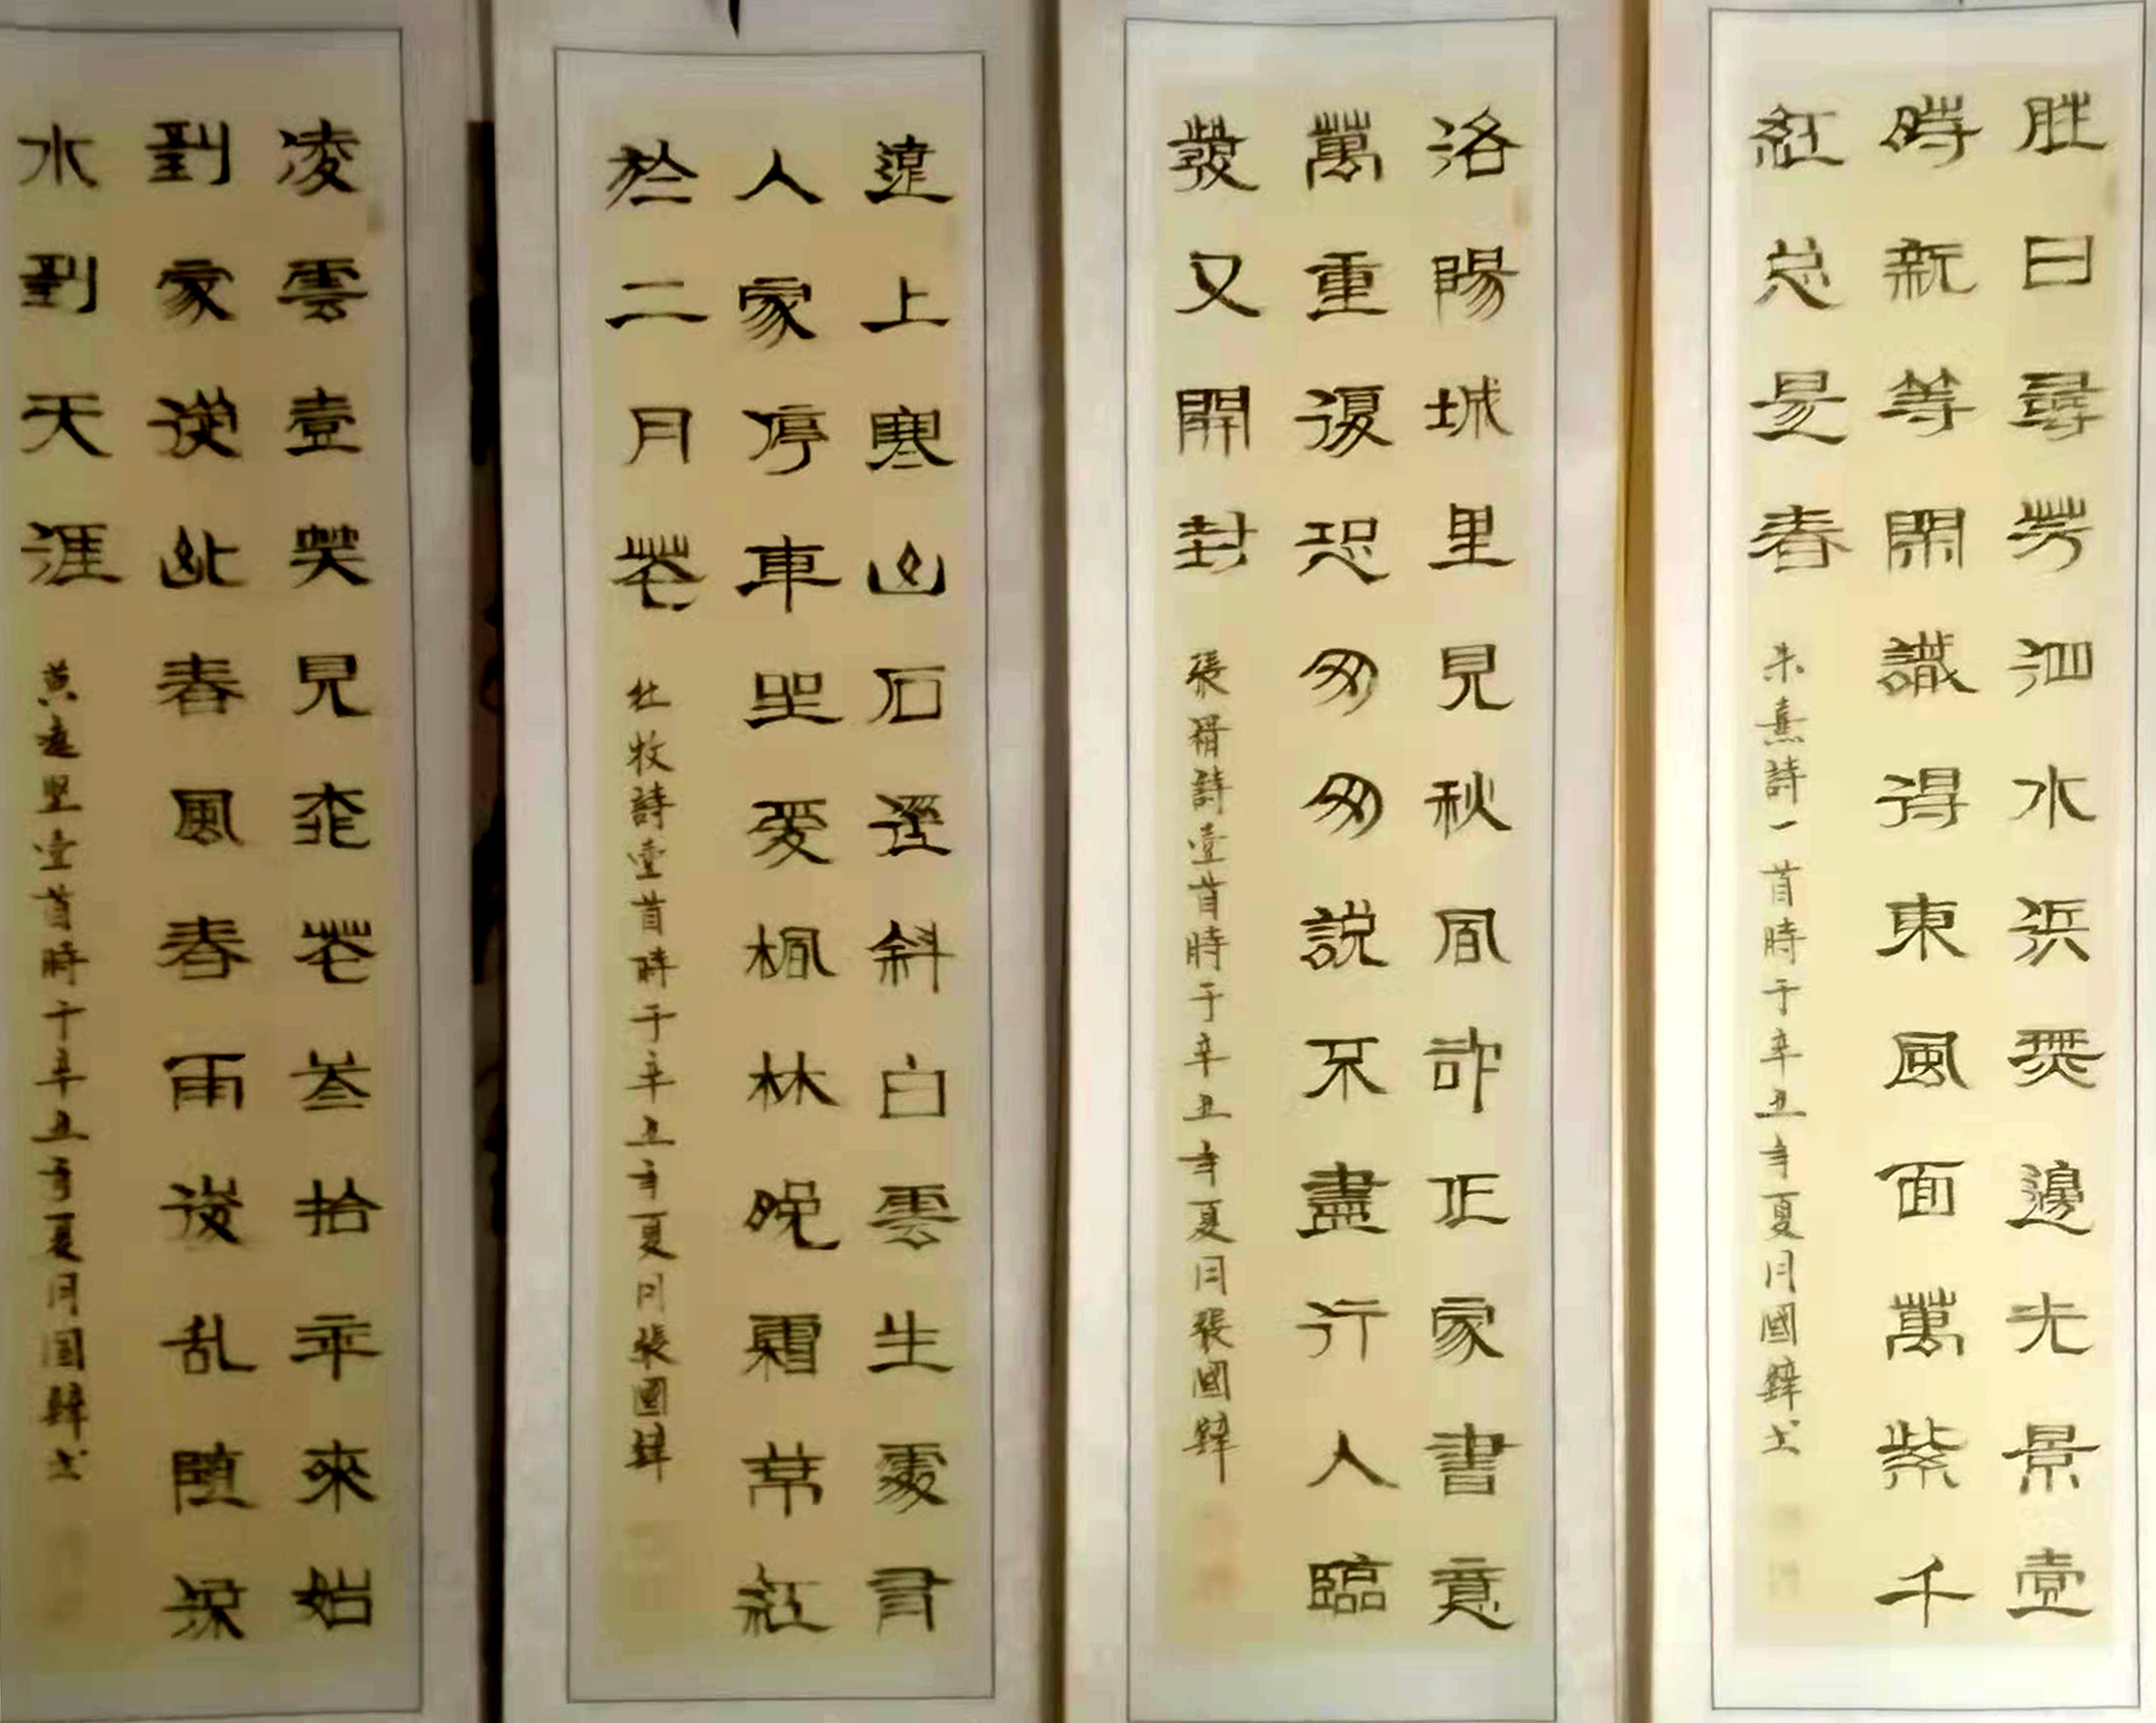 胜日尋芳泗水浜無邊光景壹
時新等閑識得東風面萬紫千
紅总是春
朱熹詩一首時于辛丑年夏月國鋒书
洛陽城里見秋風家書意
萬重復恐匆匆說不盡行人臨
發又開封
張籍詩壹首時于辛丑年夏月張國鋒
遠上寒山石徑斜白雲生處有
人家停車坐愛楓林晚霜葉紅
於二月花
杜牧詩壹首時于辛丑年夏月張國鋒
凌雲壹笑見桃花叁拾年來始
到家從此春風春雨後乱随流
水到天涯
黃庭堅壹首時于辛丑年夏月國鋒书